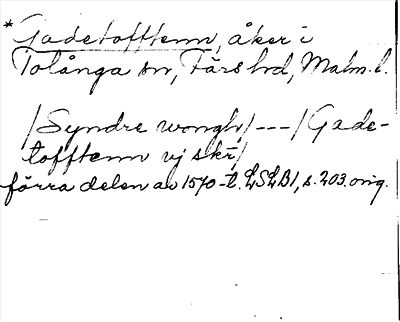 *Gadetofftenn, åker i
Tolånga sn, Färs hd, Malm. l.
/Syndre wongh/ --- /Gade-
tofftenn vj skr/
förra delen av 1570-t. LSLB1, s. 203. orig.